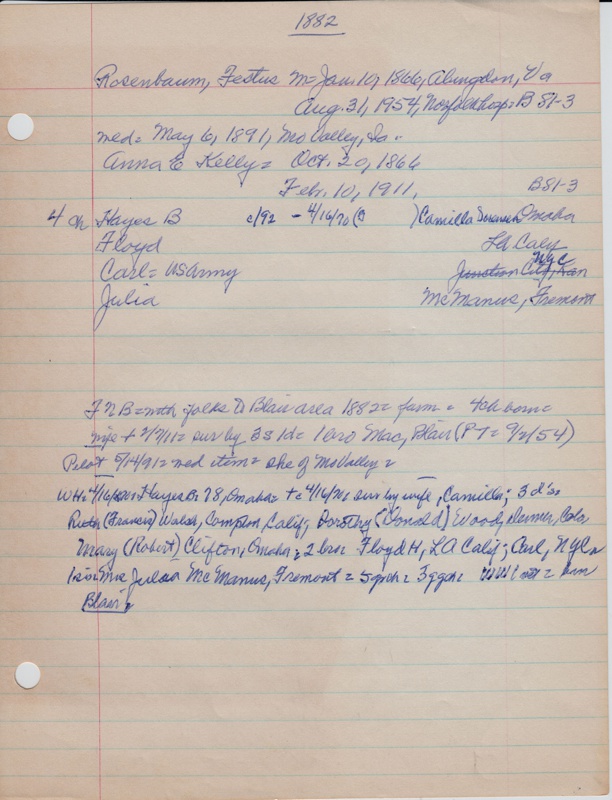 1882
Rosenbaum, Festus M = Jan. 10, 1866, Abingdon, Va
Aug. 31, 1954, Norfolk hosp = B 81-3
med = May 6, 1891, Mo Valley, Ia.
Anna E Kelly = Oct. 20, 1866
Feb. 10, 1911, B 81-3
4 ch Hayes B c/92 - 4/16/70 ( ) Camilla Omaha
Floyd LA Caly
Carl = US Army NYC Junction City, Kan
Julia McManus, Fremont
F N B = with folks to Blair area 1882 = farm = 4 ch born =
wife + 2/7/11 = sur by 3s 1d = 1 bro Mac, Blair (PT = 9/2/54)
Pilot 5/14/91 = med item = she of Mo Valley =
WH = 4/16/ Hayes B = 78, Omaha = + 4/16/ sur by wife, Camilla; 3 d's =
(Francis) Walsh, Compton, Calif; Dorothy (Donald) Wood, Denver, Colo
Mary (Robert) Clifton, Omaha = 2 bro = Floyd H, LA Calif; Carl, NYC =
1 sis Mrs Julia McManus, Fremont = 5 gch = 3 ggch = WW I vet = born
Blair =